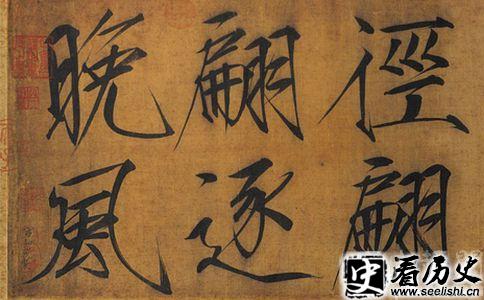 徑翩
翩逐
晚風
史 看历史
www.seelishi.cn